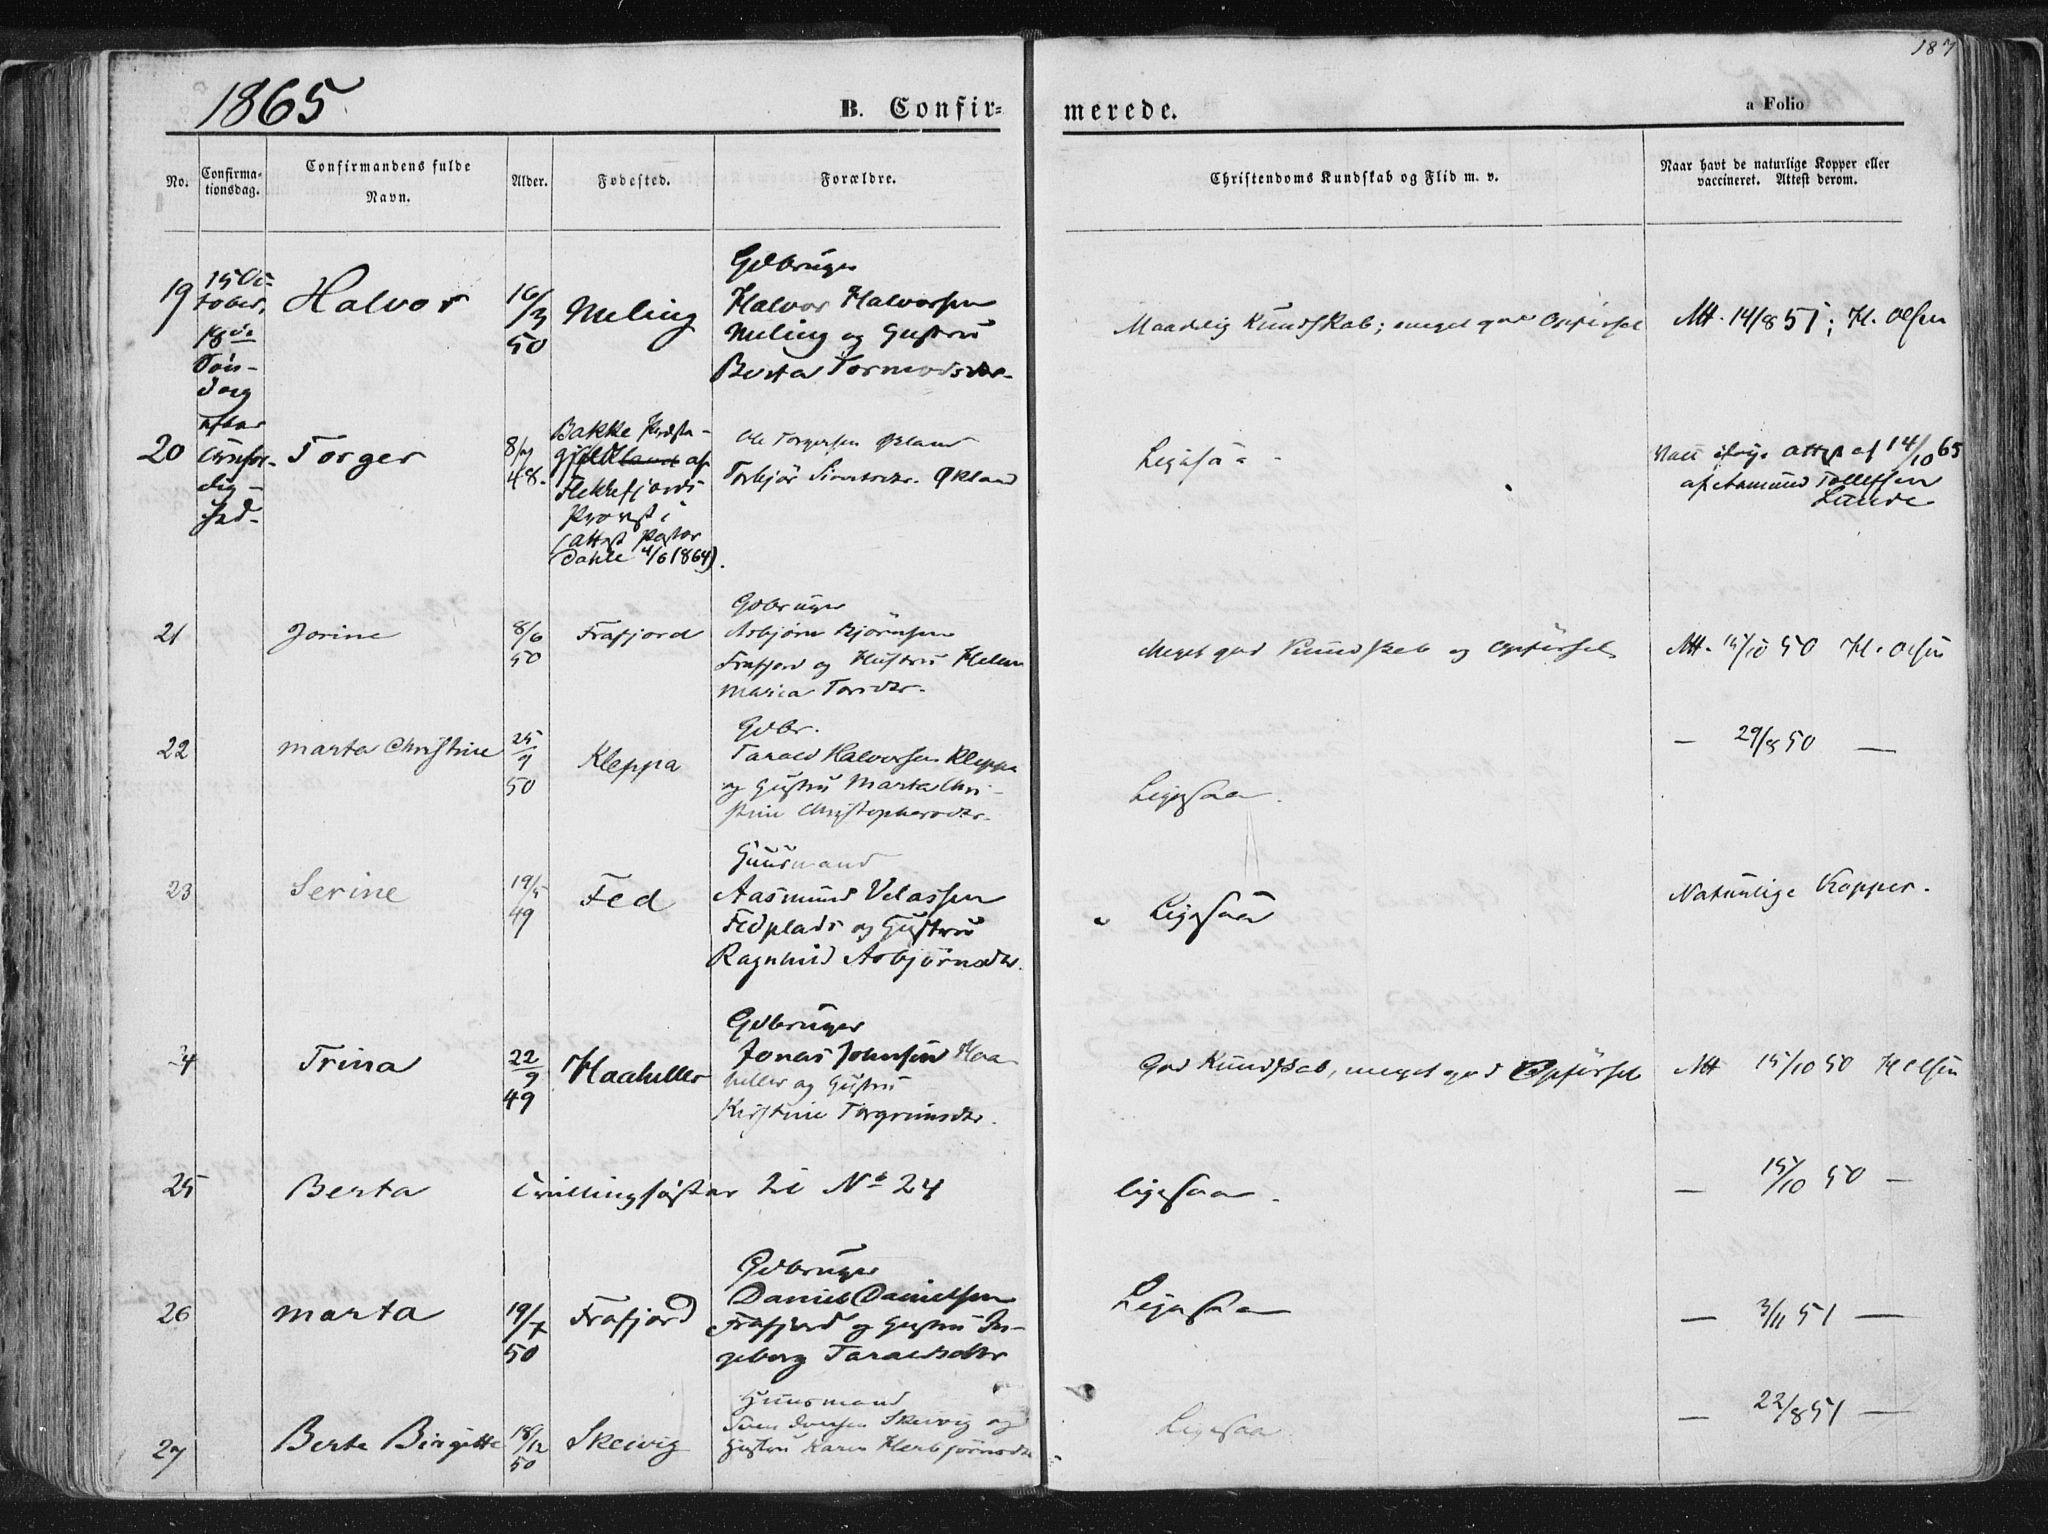 187
1865
B. Confir=
merede.
a Folio
No.
Confirma-
tionsdag.
Confirmandens fulde
Navn.
Alder.
Fødested.
Forældre.
Christendoms Kundskab og Flid m. v.
Naar havt de naturlige Kopper eller
vaccineret. Attest derom.
19
15 Oc-
tober,
18de
Søn-
dag
efter
Trefol-
dig-
hed-
Halvor
16/3
50
Meling
Gdbruger
Halvor Halvorsen
Meling og Hustru
Berta Tormodsdtr.
Maadelig Kundskab; meget god Opførsel
Att. 14/8 51; H. Olsen
20
Torger
8/7
48.
Bakke Præste-
gjeld af
Flekkefjords
Provsti
(attest Pastor
Dahle 4/6 1864).
Ole Torgersen Økland
Torbjør Sivertsdtr. Økland
Ligesaa - -
Att af 14/10 65
af Aamund Tollefsen
Lunde
21
Jorine
8/6
50
Frafjord
Gdbruger
Asbjørn Bjørnsen
Frafjord og Hustru Helene
Maria Torsdtr.
Meget god Kundskab og Opførsel
Att. 15/10 50 H. Olsen
22
Marta Christine
25
50
Kleppa
Gdbr.
Tarald Halvorsen Kleppa
og Hustru Marta Chri-
stine Christophersdtr.
Ligesaa.
— 29/8 50 —
23
Serine
19/5
49
Fed
Huusmand
Aasmund Velassen
Fedplads og Hustru
Ragnhild Asbjørnsdtr.
Ligesaa
Naturlige Kopper.
24
Trina
22/9
49
Haaheller
Gdbruger
Jonas Johnsen Haa
heller og Hustru
Kirstine Torgrimsdtr.
God Kundskab, meget god Opførsel
Att 15/10 50 H Olsen
25
Berta
Tvillingsøster til No 24
ligesaa.
— 15/10 50 —
26
Marta
19/7
50
Frafjord
Gdbruger
Daniel Danielsen
Frafjord og Hustru In-
geborg Taraldsdtr
Ligesaa
— 3/11 51 —
27
Berte Birgitte
18/12
50
Skeivig
Huusmand
Sven Skeivig og
Hustru Karen Herbjørnsdtr
Ligesaa
— 22/8 51 —